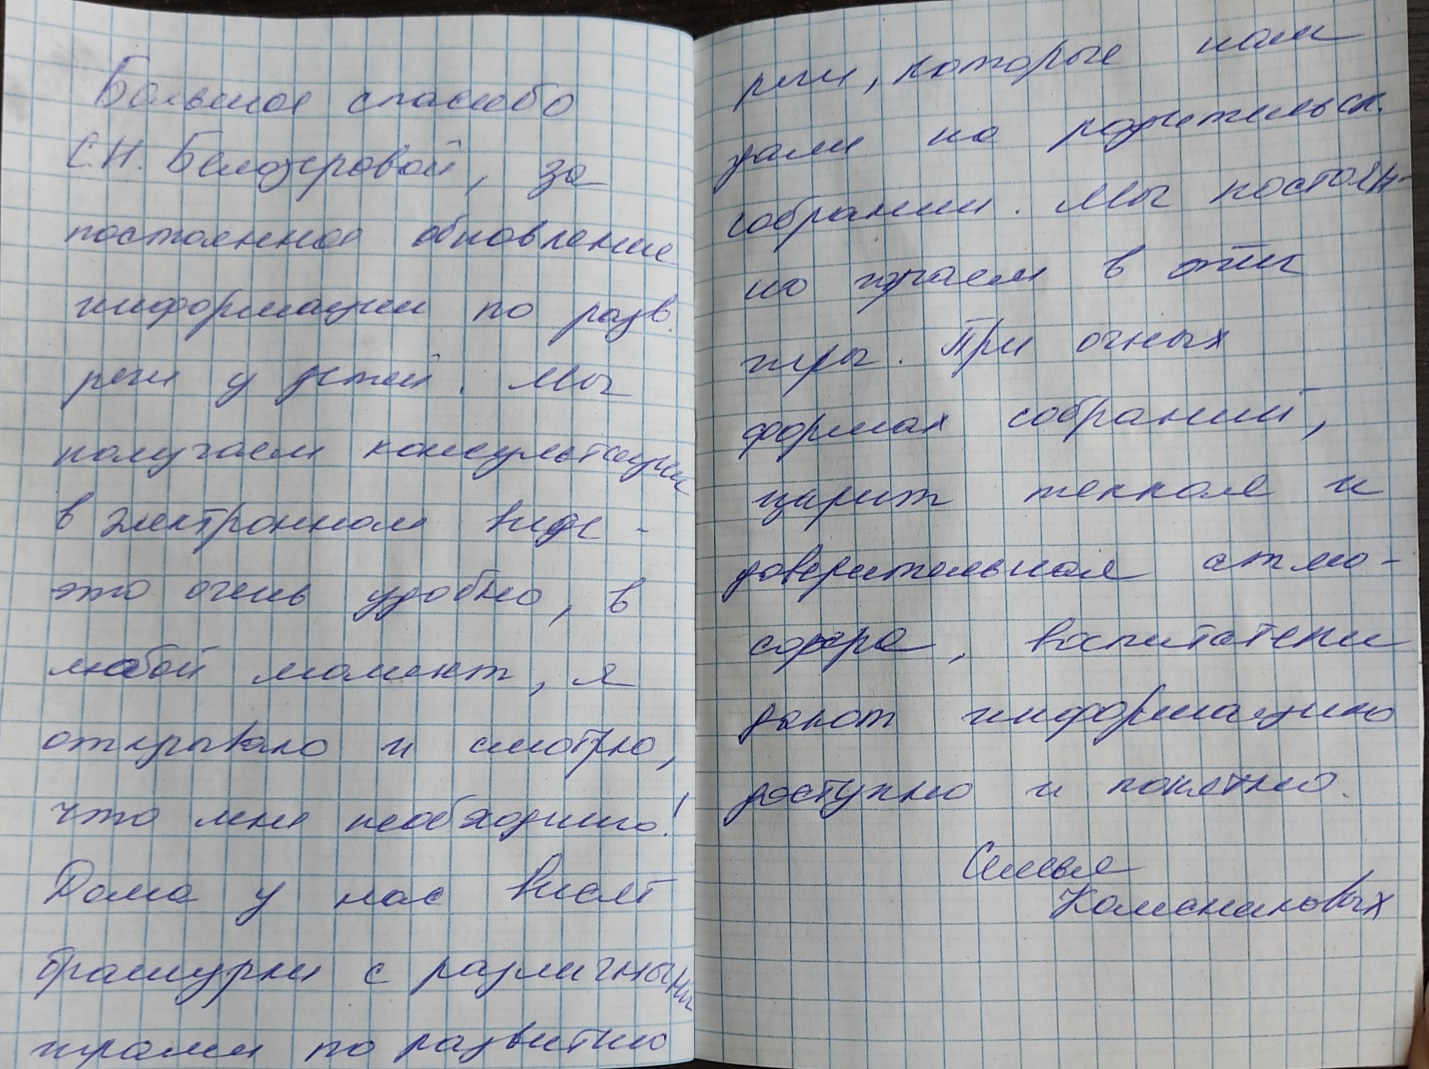 Большое спасибо
С.Н. Белозеровой, за
постоянное обновление
информации по разв.
речи у детей. Мы
получаем консультации
в электронном виде -
это очень удобно, в
любой момент, я
открываю и смотрю,
что мне необходимо!
Дома у нас висят
брашурки с различными
играми по развитию
речи, которые нам
дали на родительск.
собрании. Мы постоян-
но играем в эти
игры. При очных
формах собраний,
царит теплая и
доверительная атмо-
сфера, воспитатели
дают информацию
доступно и понятно.
Семья